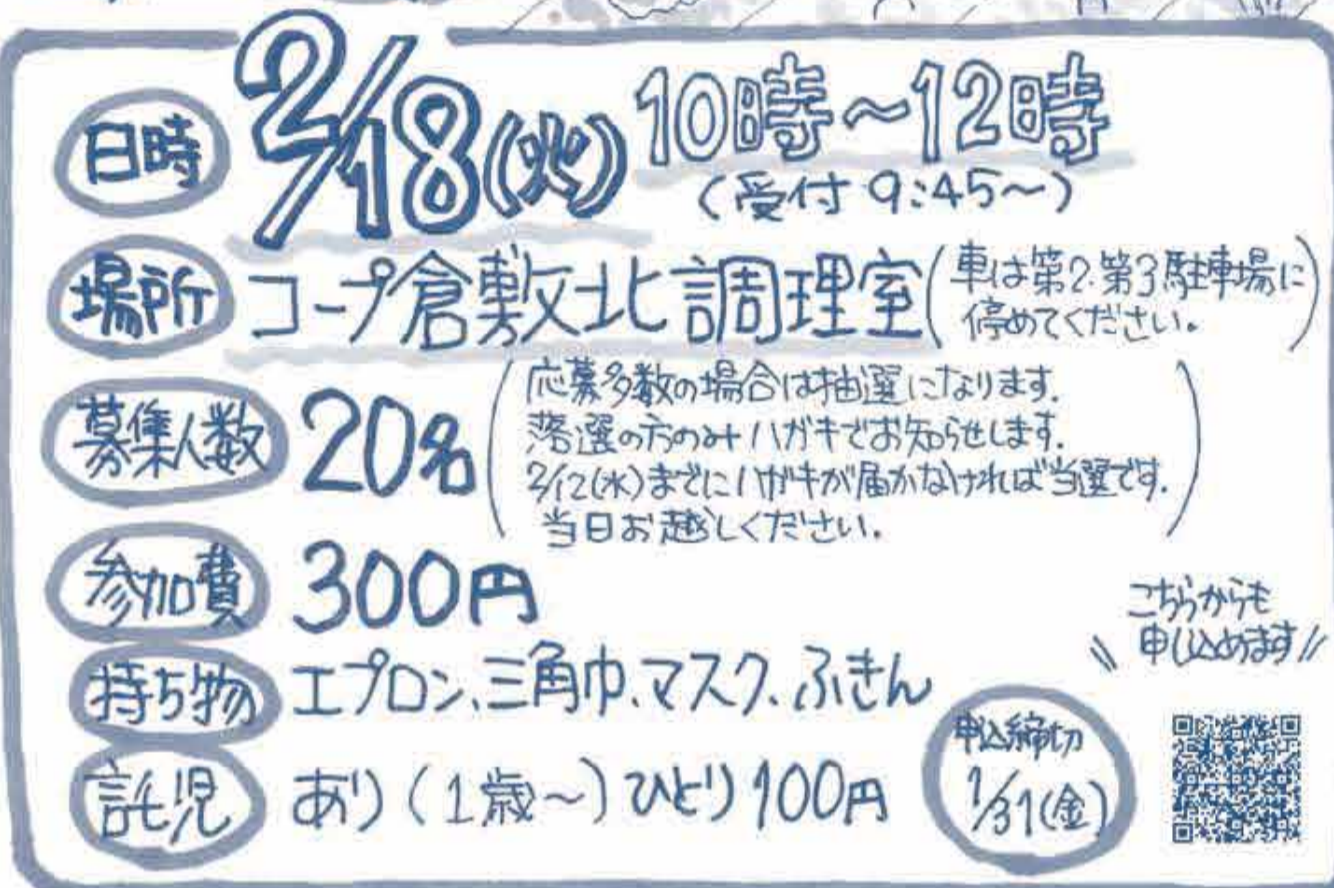 日時 2/18(火) 10時～12時
(受付 9:45～)
場所 コープ倉敷北 調理室 (車は第2.第3駐車場に
停めてください。)
募集人数 20名 (応募多数の場合は抽選になります.
落選の方のみハガキでお知らせします.
2/12(水)までにハガキが届かなければ当選です.
当日お越しください.)
参加費 300円
こちらからも
申し込めます
持ち物 エプロン、三角巾、マスク、ふきん
託児 あり (1歳～) ひとり 100円
申込締切
1/31(金)